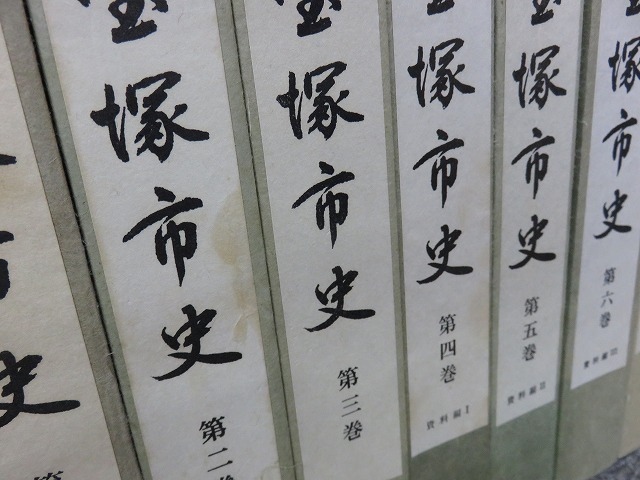 史
第
宝塚市史
第二巻
宝塚市史
第三巻
宝塚市史
第四巻
資料編I
宝塚市史
第五巻
資料編II
塚市史
第六巻
資料編III